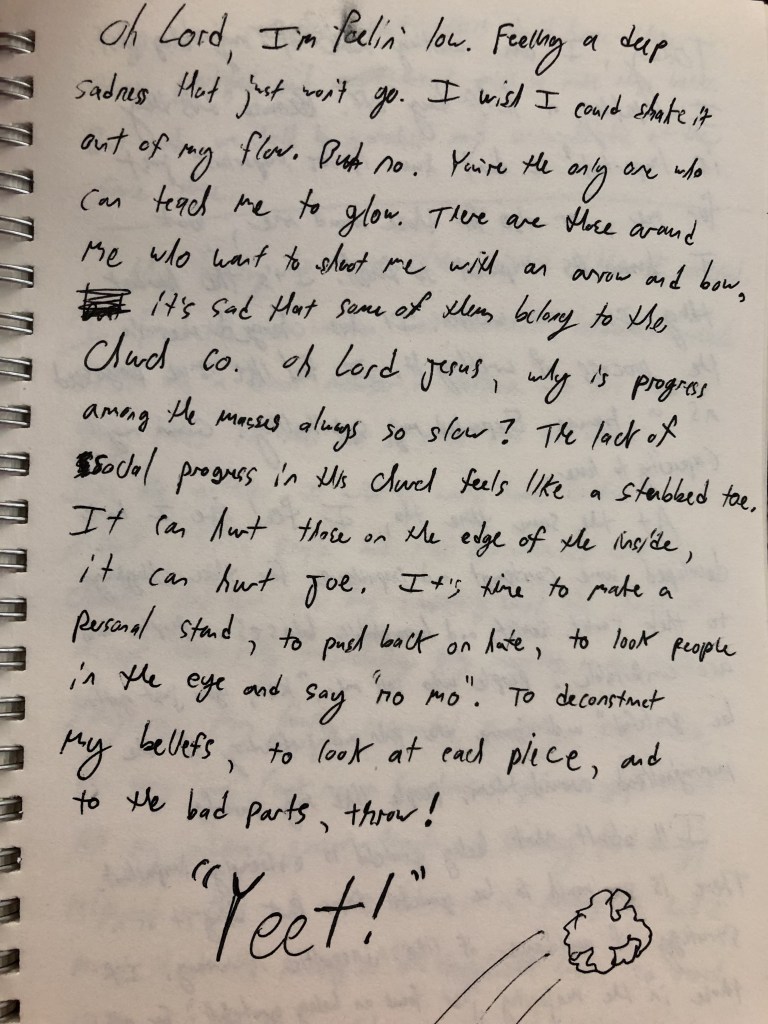 Oh Lord, I'm feelin' low. Feeling a deep
sadness that just won't go. I wish I could shake it
out of my flow. But no. You're the only one who
can teach me to glow. There are those around
me who want to shoot me with an arrow and bow,
it's sad that some of them belong to the
Church co. Oh Lord Jesus, why is progress
among the masses always so slow? The lack of
social progress in this church feels like a stubbed toe.
It can hurt those on the edge of the inside,
it can hurt Joe. It's time to make a
personal stand, to push back on hate, to look people
in the eye and say "no mo". To deconstruct
my beliefs, to look at each piece, and
to the bad parts, throw!
"Yeet!"